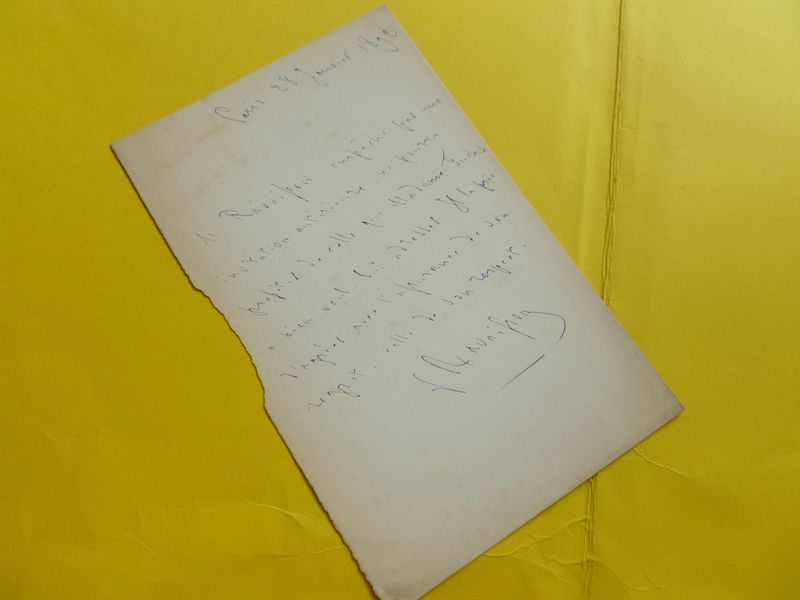 Paris 28 Janvier 1892
M. Ravaisson empêché par une
invitation antérieure ne pourra
profiter de celle que Madame
a bien voulu lui adresser. Il la prie
d'agréer avec l'assurance de son
regret, celle de son respect.
FRavaisson